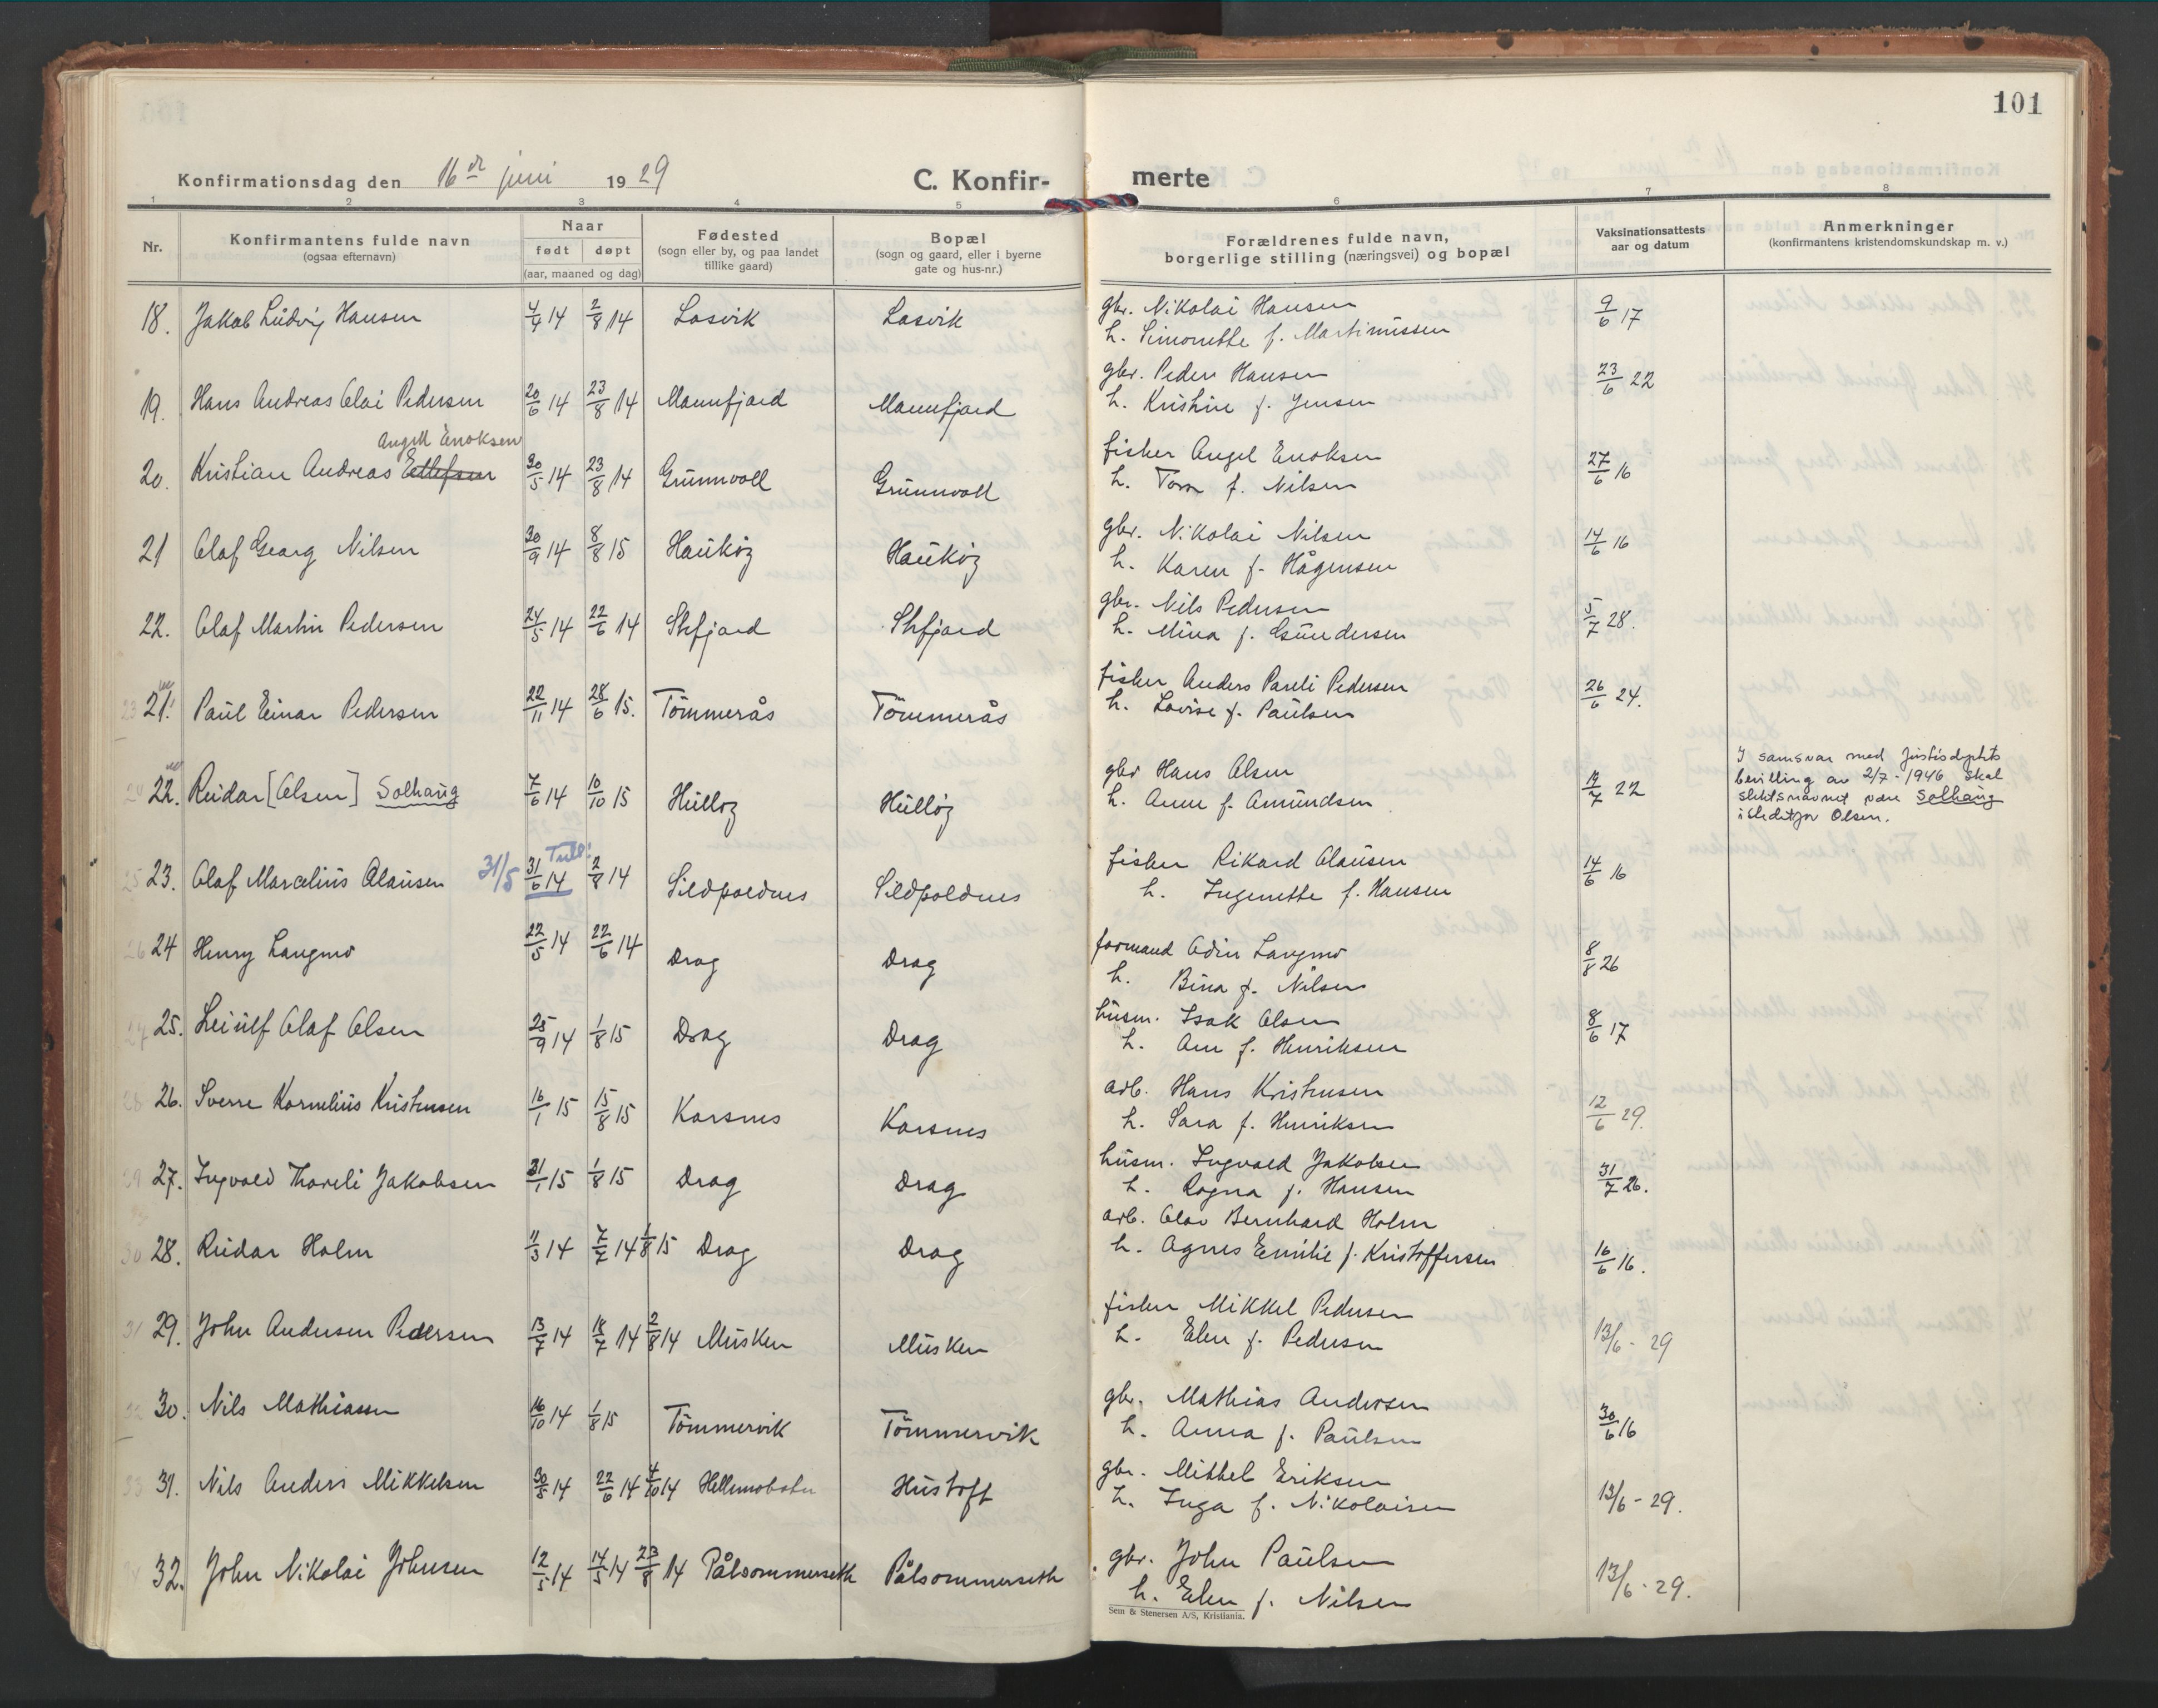 101
Konfirmationsdag den 16de juni 1929
C. Konfir- merte
1 2 3 4 5 6 7 8
Nr.
Konfirmantens fulde navn
(ogsaa efternavn)
Naar
født døpt
(aar, maaned og dag)
Fødested
(sogn eller by, og paa landet
tillike gaard)
Bopæl
(sogn og gaard, eller i byerne
gate og hus-nr.)
Forældrenes fulde navn,
borgerlige stilling (næringsvei) og bopæl
Vaksinationsattests
aar og datum
Anmerkninger
(konfirmantens kristendomskundskap m. v.)
18. Jakob Ludvig Hansen 4/4 14 2/8 14 Losvik Losvik gbr. Nikolai Hansen 9/6 17
h. Simonette f. Martinussen
19. Hans Andreas Olai Pedersen 20/6 14 23/8 14 Mannfjord Mannfjord gbr. Peder Hansen 23/6 22
h. Kristine f. Jensen
Angell Enoksen
20. Kristian Andreas Ellefsen 30/5 14 23/8 14 Grunnvoll Grunnvoll fisker Angel Enoksen 27/6 16
h. Tora f. Nilsen
21 Olaf Georg Nilsen 30/9 14 8/8 15 Haukøy Haukøy gbr. Nikolai Nilsen 14/6 16
h. Karen f. Hågensen
22. Olaf Martin Pedersen 24/5 14 22/6 14 Stefjord Stefjord gbr. Nils Pedersen 5/7 28.
h. Mina f. Gundersen
23 21. Paul Einar Pedersen 22/11 14 28/6 15. Tömmerås Tömmerås fisker Anders Pareli Pedersen 26/6 24.
h. Lovise f. Paulsen
24 22. Reidar [Olsen] Solhaug 7/6 14 10/10 15 Hulløy Hulløy gbr Hans Olsen 22
h. Anne f. Amundsen
I samsvar med Justisdeptets
bevilling av 2/7-1946 skal
slektsnavnet være Solhaug
istedetfor Olsen.
25 23. Olaf Marcelius Olausen 31/5 31/6 14 2/8 14 Sildpoldnes Sildpoldnes fisker Rikard Olausen 14/6 16
h. Ingenette f. Hansen
26 24 Henry Langmo 22/5 14 22/6 14 Drag Drag formand Odin Langmo 8/8 26
h. Bina f. Nilsen
27 25. Leiulf Olaf Olsen 25/9 14 1/8 15 Drag Drag husm. Isak Olsen 8/6 17
h. Ane f. Henriksen
28 26. Sverre Kornelius Kristensen 16/1 15 15/8 15 Korsnes Korsnes arb. Hans Kristensen 12/6 29.
h. Sara f. Henriksen
29 27. Ingvald Thoreli Jakobsen 31/1 15 1/8 15 Drag Drag husm. Ingvald Jakobsen 31/7 26.
h. Ragna f. Hansen
30 28. Reidar Holm 11/3 14 7/7 14 1/8 15 Drag Drag arb. Olav Bernhard Holm 16/6 16.
h. Agnes Emilie f. Kristoffersen
31 29. John Andersen Pedersen 13/7 14 18/7 14 2/8 14 Musken Musken fisker Mikkel Pedersen 13/6 - 29
h. Elen f. Pedersen
32 30. Nils Mathiassen 16/10 14 1/8 15 Tömmervik Tömmervik gbr. Mathias Andersen 30/6 16
h. Anna f. Paulsen
33 31. Nils Anders Mikkelsen 30/5 14 22/6 14 4/10 14 Hellemobotn Hustoft gbr. Mikkel Eriksen 13/6 - 29.
h. Inga f. Nikolaisen
32. John Nikolai Johnsen 12/5 14 14/5 14 23/8 14 Pålsommerseth Pålsommerseth gbr. John Paulsen 13/6 - 29.
h. Elen f. Nilsen
Sem & Stenersen A/S, Kristiania.